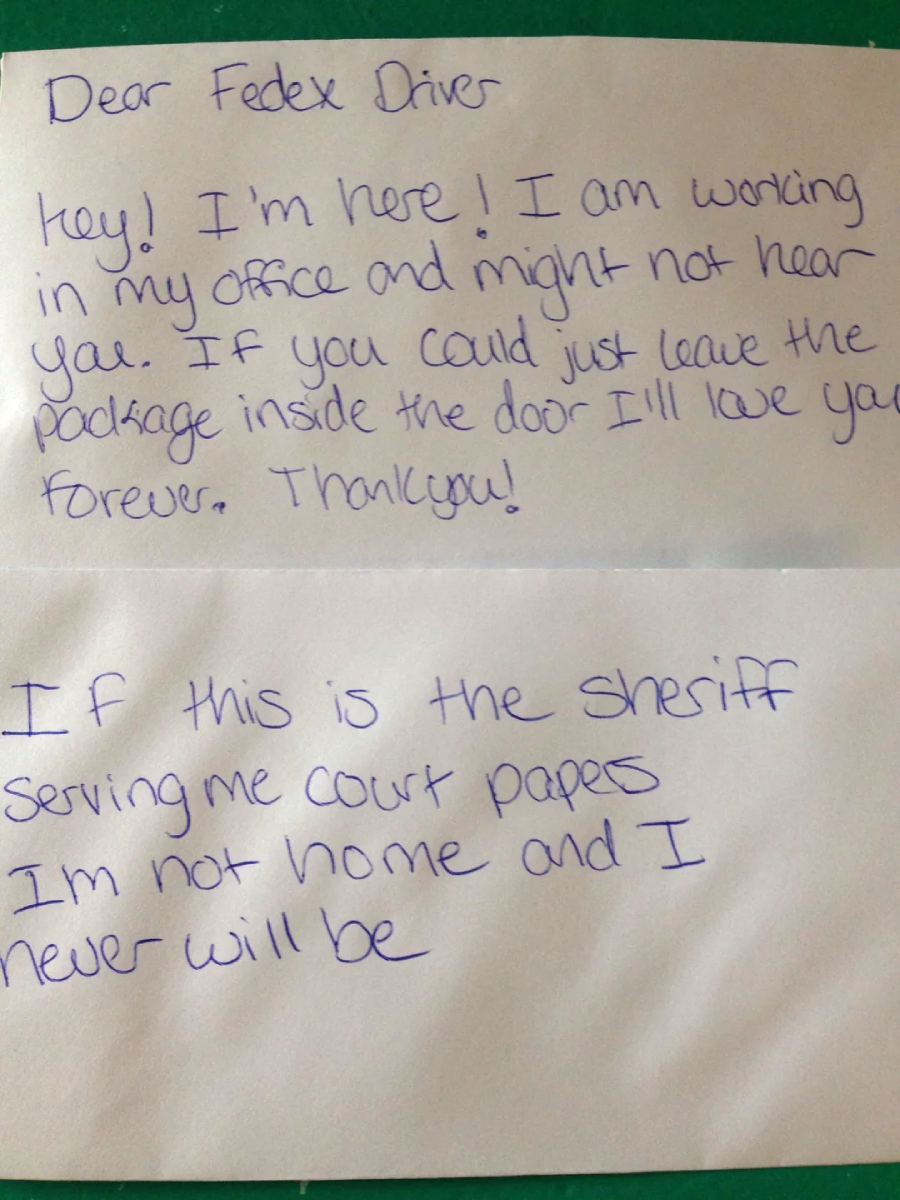 Dear Fedex Driver
hey! I'm here! I am working
in my office and might not hear
you. If you could just leave the
package inside the door I'll love you
forever. Thankyou!
If this is the sheriff
serving me court papers
Im not home and I
never will be